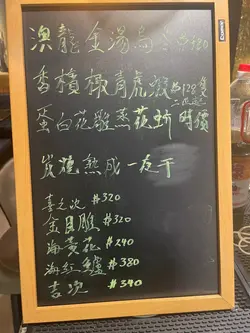 澳龍金湯焗 $380
香檳椒青虎蝦 $128隻 二隻起
蛋白花雕蒸花蚧 時價
炭燒熟成一夜干
喜之次 $320
金目雕 $320
海黃花 $240
海紅鱸 $380
吉次 $340